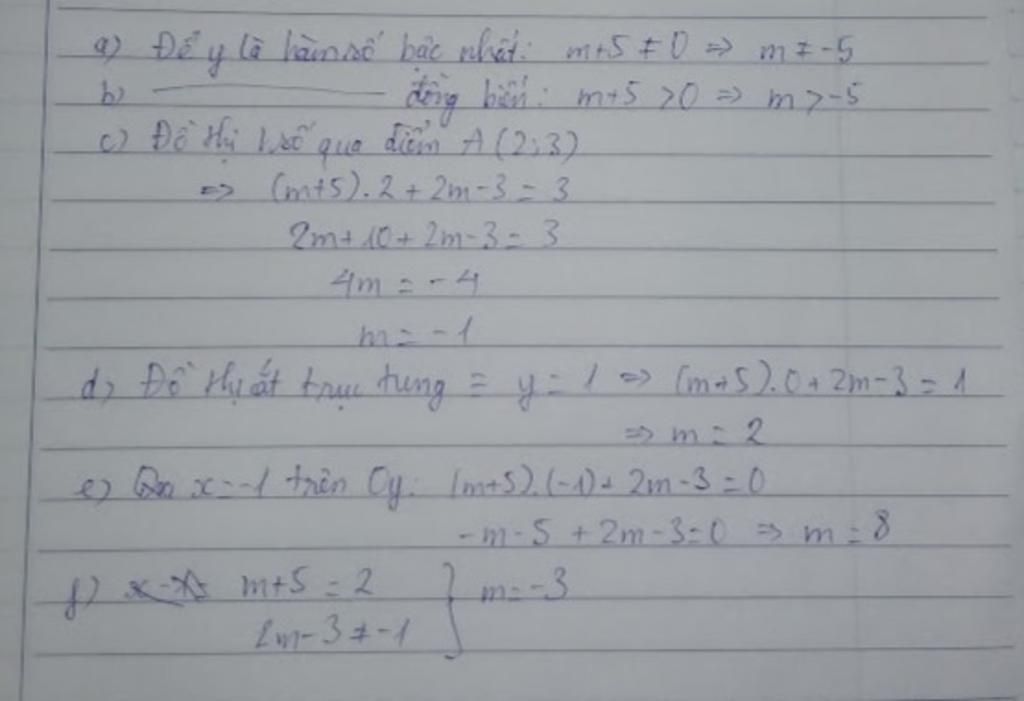 a) Để y là hàm số bậc nhất: m+5 ≠ 0 => m ≠ -5
b) ——— đồng biến: m+5 >0 => m >-5
c) Đồ thị h.số qua điểm A(2;3)
=> (m+5).2 + 2m-3 = 3
2m+10+2m-3 = 3
4m = -4
m = -1
d) Đồ thị cắt trục tung = y = 1 => (m+5).0+2m-3 = 1
=> m = 2
e) Qua x=-1 trên Oy: (m+5).(-1)+ 2m-3 = 0
-m-5 + 2m-3=0 => m = 8
f) m+5 = 2 } m=-3
2m-3 ≠ -1